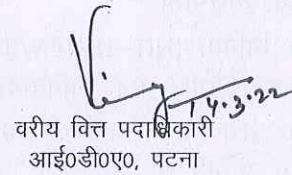 14.3.22
वरीय वित्त पदाधिकारी
आई0डी0ए0, पटना